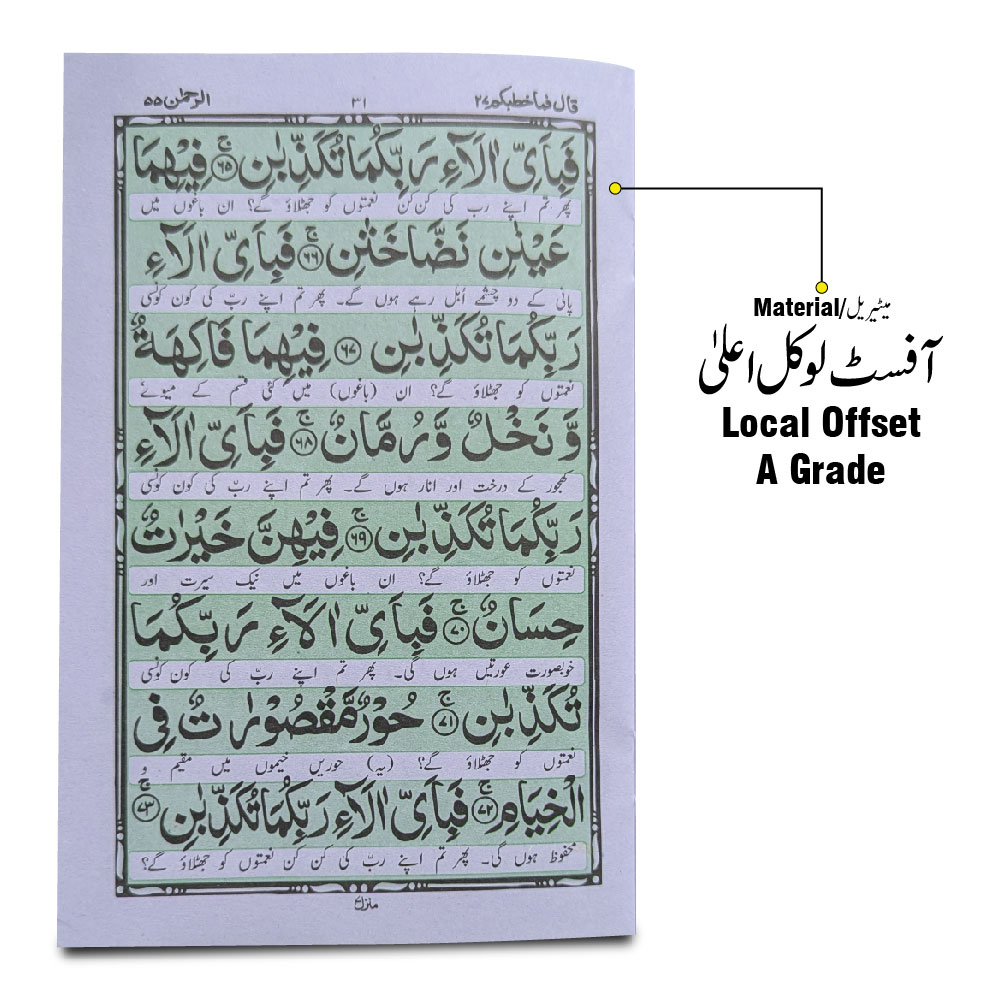 قال فما خطبكم ۲۷ ۳۱ الرحمٰن ۵۵
فَبِاَیِّ اٰلَآءِ رَبِّکُمَا تُکَذِّبٰنِ ۚ﴿۶۵﴾ فِیْہِمَا
پھر تم اپنے رب کی کن کن نعمتوں کو جھٹلاؤ گے؟ ان باغوں میں
عَیْنٰنِ نَضَّاخَتٰنِ ۚ﴿۶۶﴾ فَبِاَیِّ اٰلَآءِ
پانی کے دو چشمے اُبل رہے ہوں گے۔ پھر تم اپنے ربّ کی کون کونسی
رَبِّکُمَا تُکَذِّبٰنِ ﴿۶۷﴾ فِیْہِمَا فَاکِہَۃٌ
نعمتوں کو جھٹلاؤ گے؟ ان (باغوں) میں کئی قسم کے میوئے
وَّ نَخْلٌ وَّ رُمَّانٌ ۚ﴿۶۸﴾ فَبِاَیِّ اٰلَآءِ
کھجور کے درخت اور انار ہوں گے۔ پھر تم اپنے ربّ کی کون کونسی
رَبِّکُمَا تُکَذِّبٰنِ ۚ﴿۶۹﴾ فِیْہِنَّ خَیْرٰتٌ
نعمتوں کو جھٹلاؤ گے؟ ان باغوں میں نیک سیرت اور
حِسَانٌ ۚ﴿۷۰﴾ فَبِاَیِّ اٰلَآءِ رَبِّکُمَا
خوبصورت عورتیں ہوں گی۔ پھر تم اپنے ربّ کی کون کونسی
تُکَذِّبٰنِ ۚ﴿۷۱﴾ حُوْرٌ مَّقْصُوْرٰتٌ فِی
نعمتوں کو جھٹلاؤ گے؟ (یہ) حوریں خیموں میں مقیم و
الْخِیَامِ ۚ﴿۷۲﴾ فَبِاَیِّ اٰلَآءِ رَبِّکُمَا تُکَذِّبٰنِ ۚ﴿۷۳﴾
محفوظ ہوں گی۔ پھر تم اپنے ربّ کی کن کن نعمتوں کو جھٹلاؤ گے؟
Material/میٹیریل
آفسٹ لوکل اعلیٰ
Local Offset
A Grade